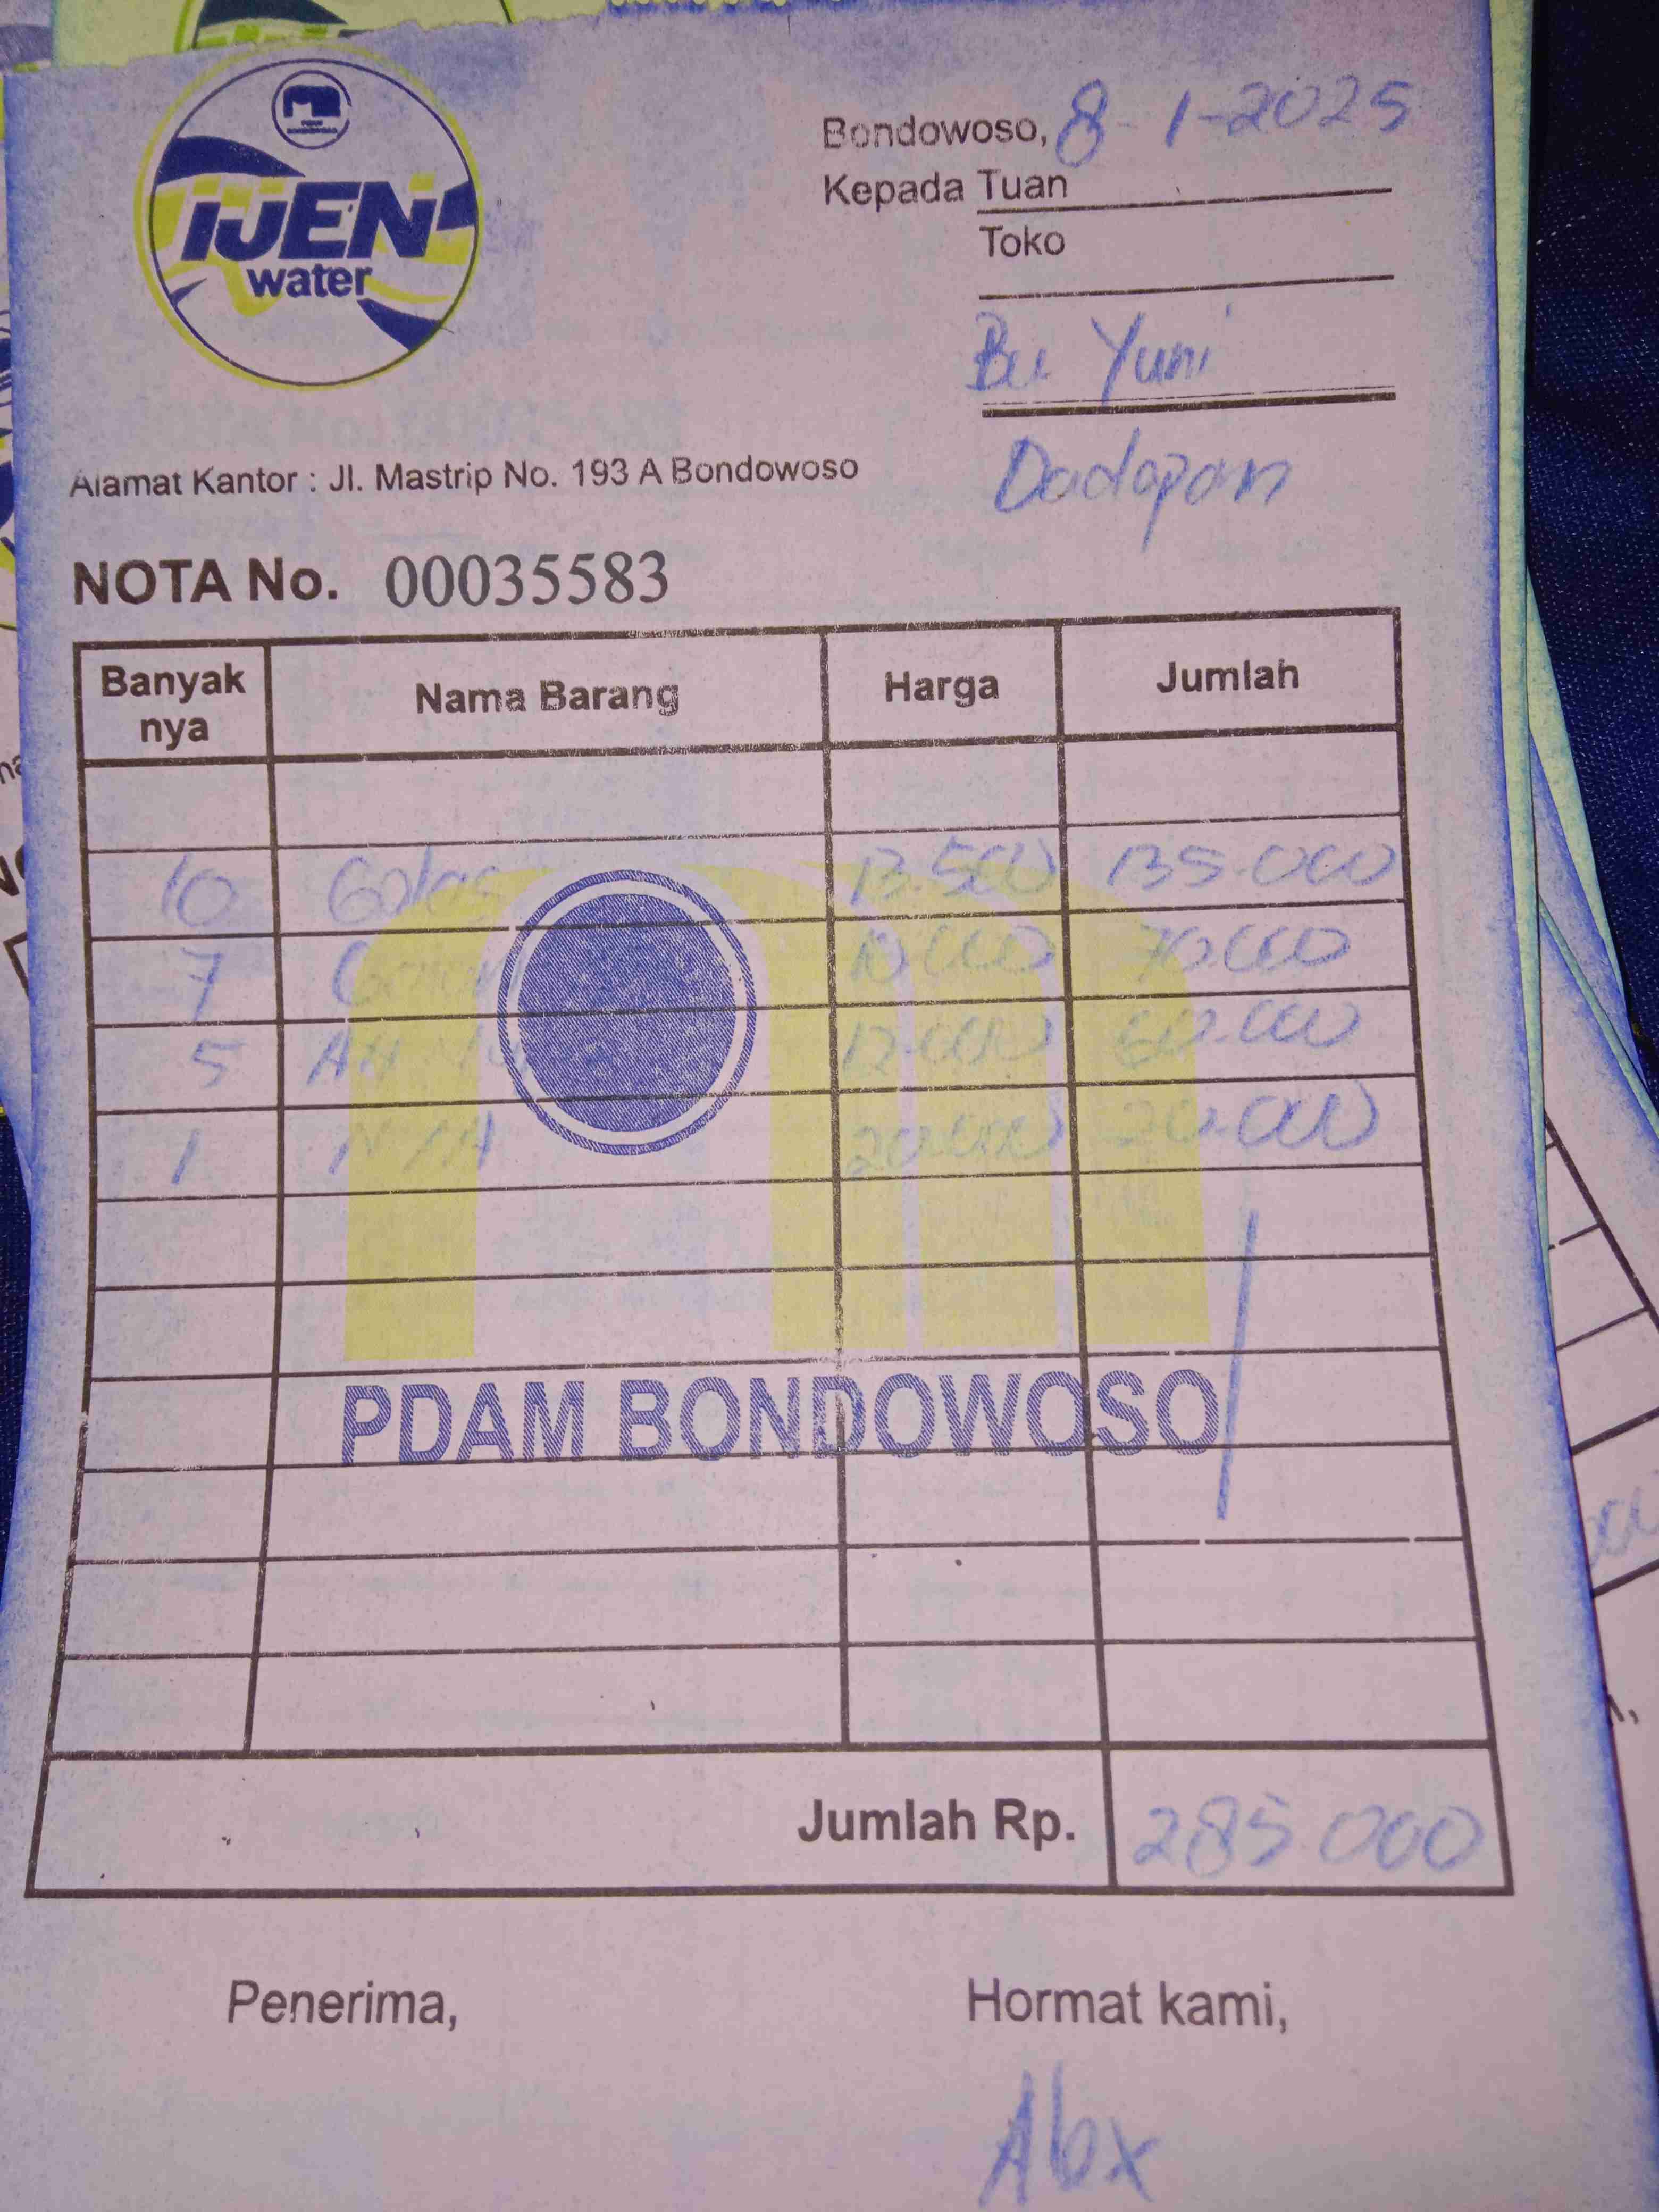 IJEN
water
Bondowoso, 8-1-2025
Kepada Tuan
Toko
Bu Yuni
Dadapan
Alamat Kantor : Jl. Mastrip No. 193 A Bondowoso
NOTA No. 00035583
Banyak nya Nama Barang Harga Jumlah
10 Gelas 13.500 135.000
7 10.000 70.000
5 12.000 60.000
1 20.000 20.000
PDAM BONDOWOSO
Jumlah Rp. 285.000
Penerima, Hormat kami,